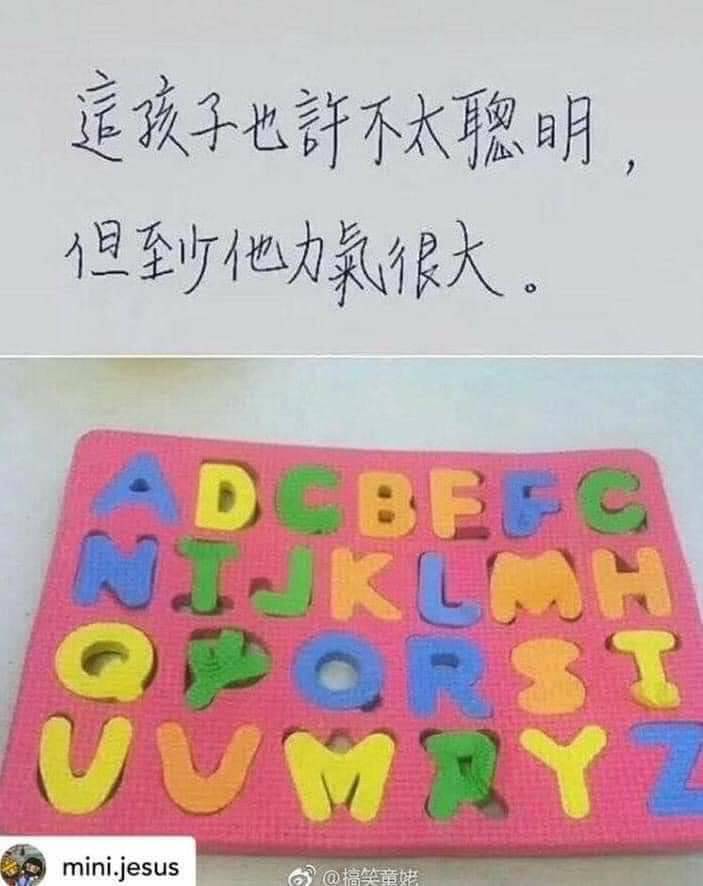 這孩子也許不太聰明，
但至少他力氣很大。
A D G B F E C
N I J K L M H
Q O R S I
U V M Y Z
mini.jesus
@搞笑童姥